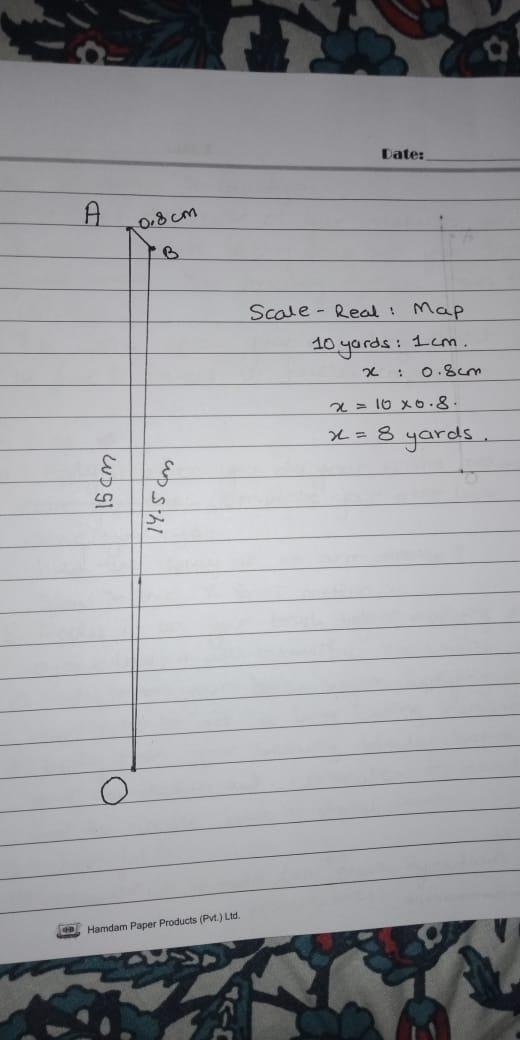 Date:
A
0.8cm
B
Scale - Real : Map
10 yards : 1cm.
x : 0.8cm
x = 10 x 0.8.
x = 8 yards.
15cm
14.5cm
O
Hamdam Paper Products (Pvt.) Ltd.